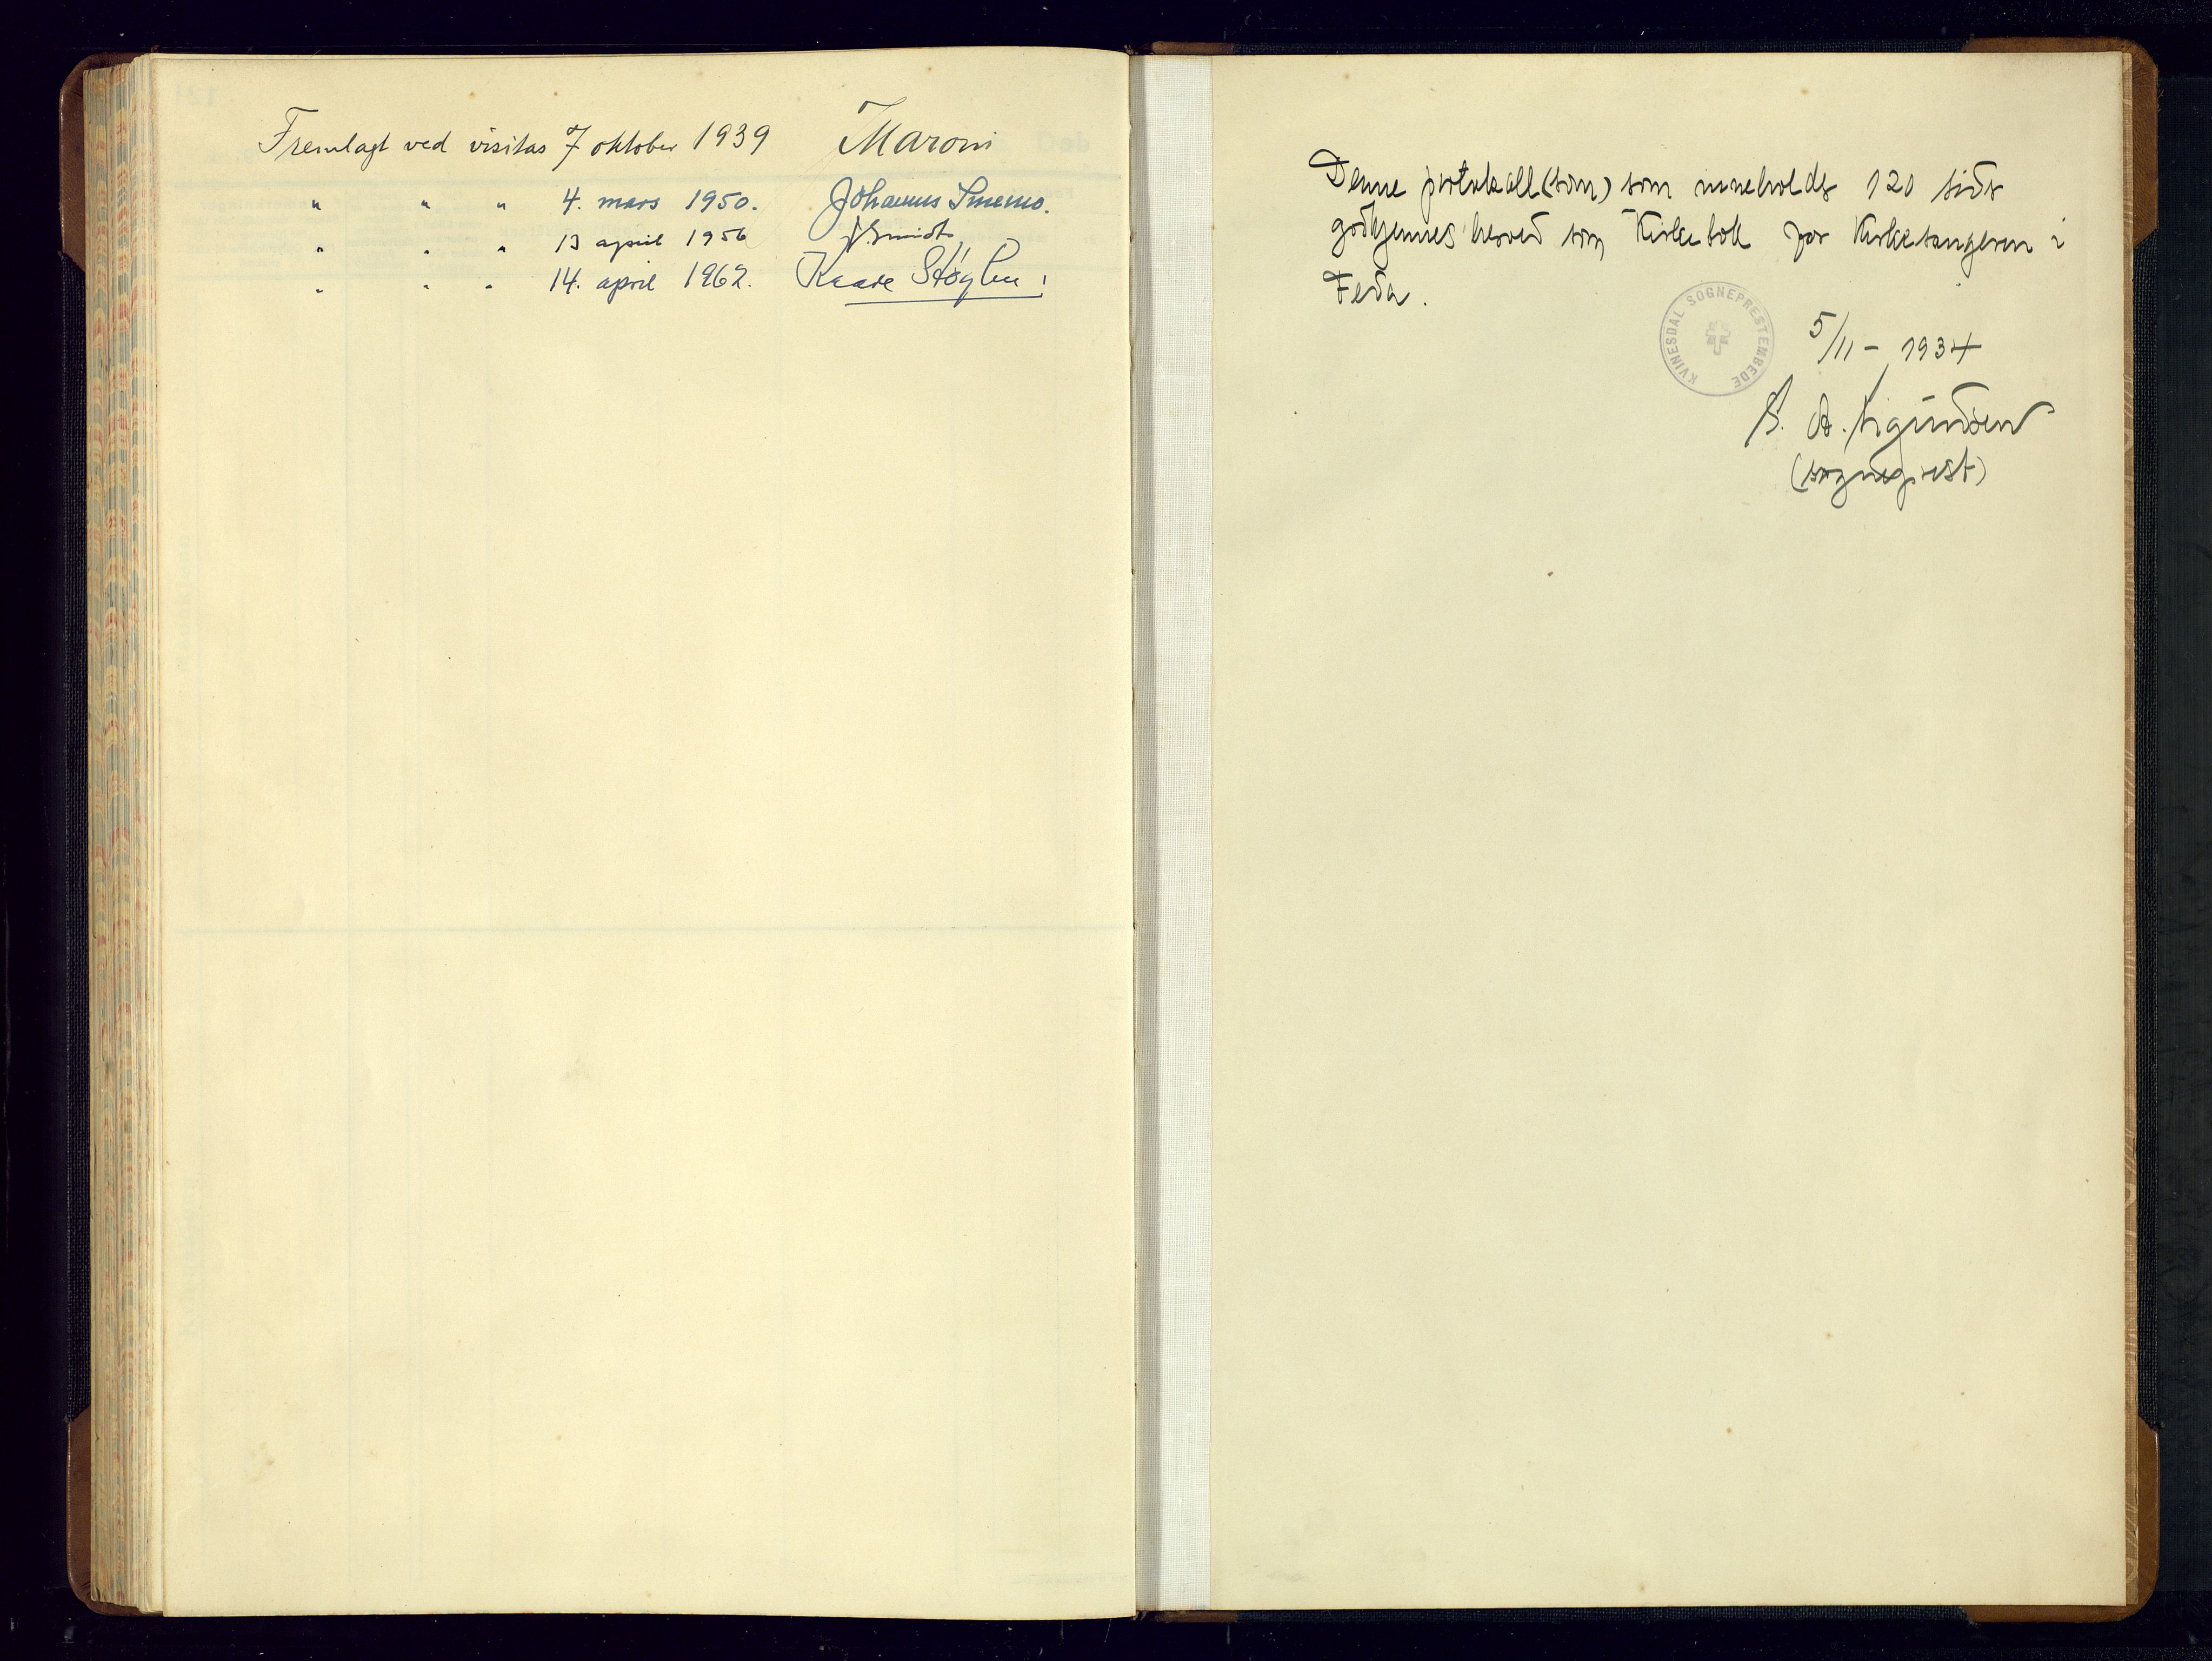 Fremlagt ved visitas 7 oktober 1939 Maroni
" " " 4. mars 1950. Johannes Smemo.
" " " 13 april 1956 J Smidt
" " " 14. april 1962. Kaare Støylen
Denne protokoll (som) som inneholder 120 sider
godkjennes herved som Kirkebok for Kirkesangeren i
Feda.
KVINESDAL SOGNEPRESTEMBEDE
5/11 - 1934
S. B. Sigurdsen
(sogneprest)